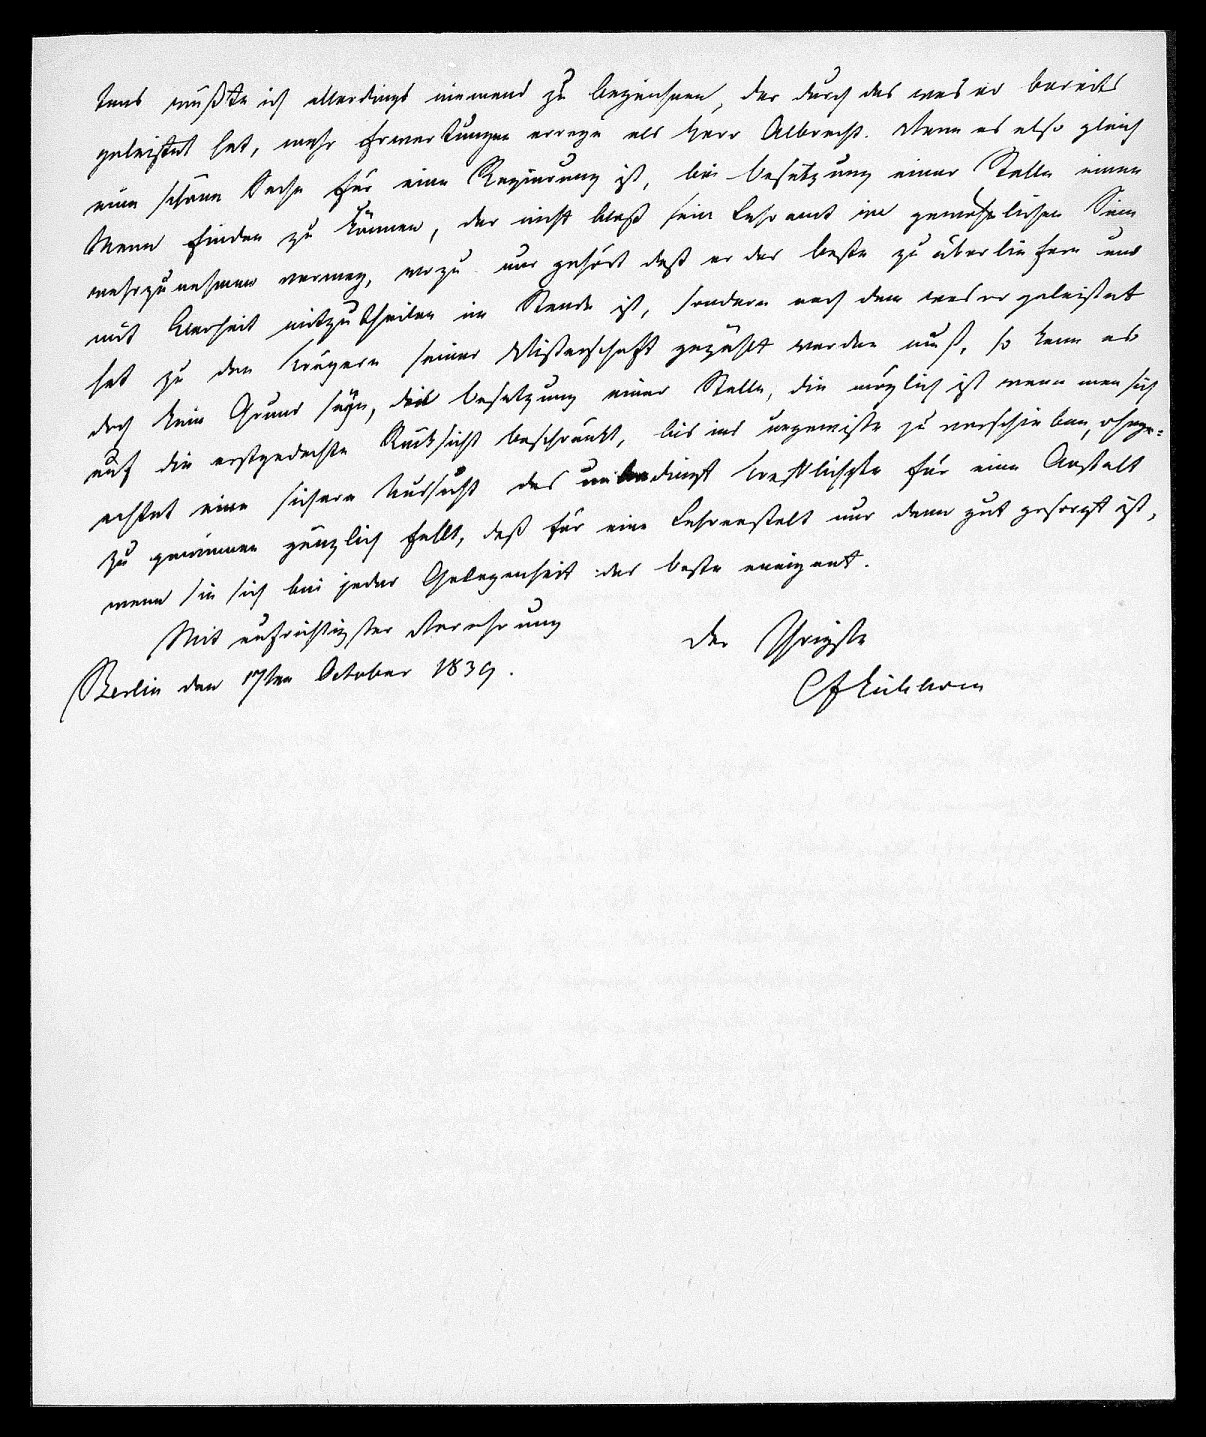 tens wüßte ich allerdings niemand zu bezeichnen, der durch das was er bereits
geleistet hat, mehr Erwartungen errege als Herr Albrecht. Wenn es also gleich
eine schöne Sache für eine Regierung ist, bei Besetzung einer Stelle einen
Mann finden zu können, der nicht bloß sein Lehramt im gewöhnlichen Sinn
wahrzunehmen vermag, wozu nur gehört daß er das beste zu überliefern und
mit Klarheit mitzutheilen im Stande ist, sondern nach dem was er geleistet
hat zu den Trägern seiner Wissenschaft gezählt werden muß, so kann es
doch kein Grund seyn, die Besetzung einer Stelle, die möglich ist wenn man sich
auf die erstgedachte Rücksicht beschränkt, bis ins ungewisse zu verschieben, ohnge-
achtet eine sichere Aussicht das unbedingt trefflichste für eine Anstalt
zu gewinnen gänzlich fehlt, daß für eine Lehranstalt nur dann gut gesorgt ist,
wenn sie sich bei jeder Gelegenheit das beste aneignet.
Mit aufrichtigster Verehrung
der Ihrigste
Berlin den 17ten October 1839.
CFEichhorn